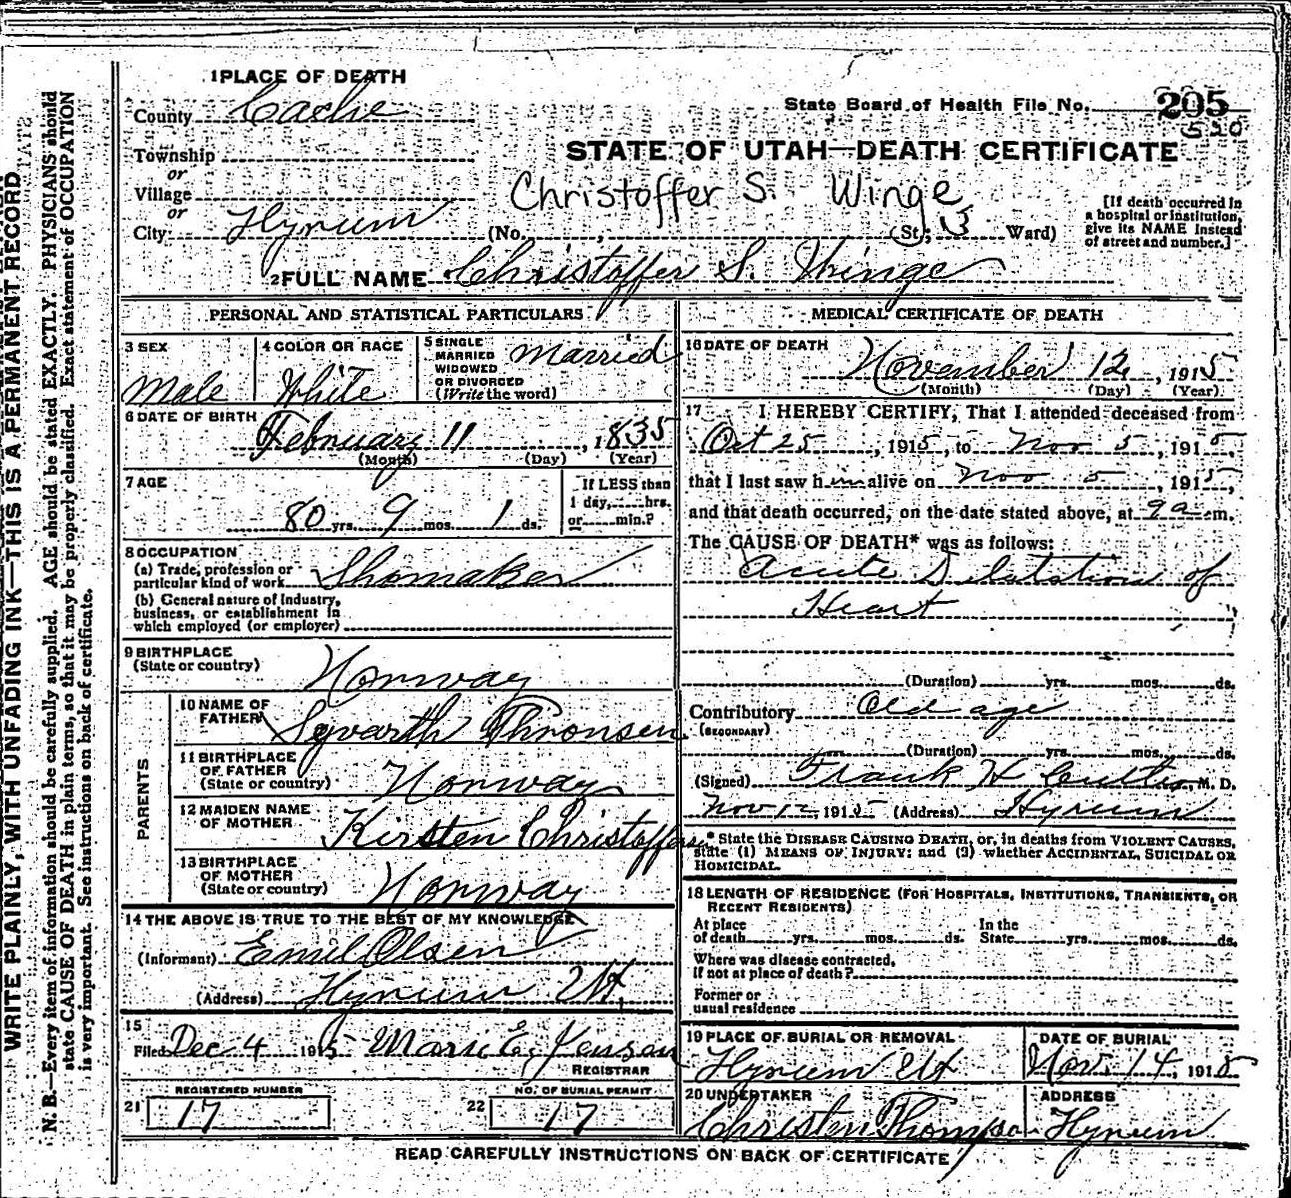 1 PLACE OF DEATH
County Cache
State Board of Health File No. 205
530
Township
or
Village
or
City Hyrum
STATE OF UTAH—DEATH CERTIFICATE
Christoffer S. Winge
(No. , St; 3 Ward)
[If death occurred in
a hospital or institution,
give its NAME instead
of street and number.]
2 FULL NAME Christoffer S. Winge
PERSONAL AND STATISTICAL PARTICULARS
3 SEX
Male
4 COLOR OR RACE
White
5 SINGLE
MARRIED
WIDOWED
OR DIVORCED
(Write the word)
Married
6 DATE OF BIRTH
February 11, 1835
(Month) (Day) (Year)
7 AGE
80 yrs. 9 mos. 1 ds.
If LESS than
1 day, hrs.
or min.?
8 OCCUPATION
(a) Trade, profession or
particular kind of work Shomaker
(b) General nature of Industry,
business, or establishment in
which employed (or employer)
9 BIRTHPLACE
(State or country)
Norway
PARENTS
10 NAME OF
FATHER Syvarth Thronsen
11 BIRTHPLACE
OF FATHER
(State or country) Norway
12 MAIDEN NAME
OF MOTHER Kirsten Christoffersen
13 BIRTHPLACE
OF MOTHER
(State or country) Norway
14 THE ABOVE IS TRUE TO THE BEST OF MY KNOWLEDGE
(Informant) Emil Olsen
(Address) Hyrum Ut.
15
Filed Dec 4 1915 Marie E. Jensen
REGISTRAR
REGISTERED NUMBER
21 17
NO. OF BURIAL PERMIT
22 17
MEDICAL CERTIFICATE OF DEATH
16 DATE OF DEATH
November 12, 1915
(Month) (Day) (Year)
17 I HEREBY CERTIFY, That I attended deceased from
Oct 25, 1915, to Nov 5, 1915,
that I last saw him alive on Nov 5, 1915,
and that death occurred, on the date stated above, at 9 a m.
The CAUSE OF DEATH* was as follows:
Acute Dilatation of
Heart
(Duration) yrs. mos. ds.
Contributory Old age
(SECONDARY)
(Duration) yrs. mos. ds.
(Signed) Frank H M. D.
Nov 12, 1915 (Address) Hyrum
* State the DISEASE CAUSING DEATH, or, in deaths from VIOLENT CAUSES,
state (1) MEANS OF INJURY; and (2) whether ACCIDENTAL, SUICIDAL OR
HOMICIDAL.
18 LENGTH OF RESIDENCE (FOR HOSPITALS, INSTITUTIONS, TRANSIENTS, OR
RECENT RESIDENTS)
At place
of death yrs. mos. ds.
In the
State yrs. mos. ds.
Where was disease contracted,
if not at place of death?
Former or
usual residence
19 PLACE OF BURIAL OR REMOVAL
Hyrum Ut
DATE OF BURIAL
Nov. 14, 1915
20 UNDERTAKER
Christen Thompson
ADDRESS
Hyrum
READ CAREFULLY INSTRUCTIONS ON BACK OF CERTIFICATE
WRITE PLAINLY, WITH UNFADING INK—THIS IS A PERMANENT RECORD
N. B.—Every item of information should be carefully supplied. AGE should be stated EXACTLY. PHYSICIANS should
state CAUSE OF DEATH in plain terms, so that it may be properly classified. Exact statement of OCCUPATION
is very important. See instructions on back of certificate.